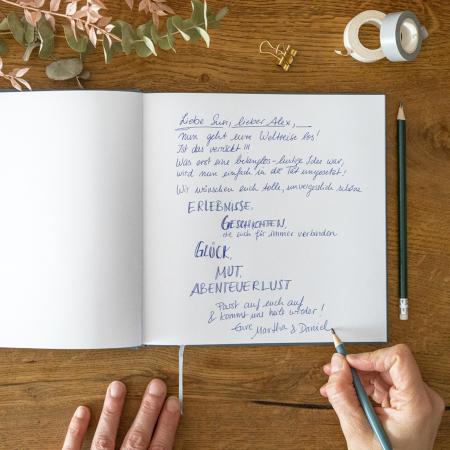 Liebe Susi, lieber Alex,
nun geht eure Weltreise los!
Ist das verrückt!!!
Was erst eine belanglos-lustige Idee war,
wird nun einfach in die Tat umgesetzt!
Wir wünschen euch tolle, unvergesslich schöne
ERLEBNISSE,
GESCHICHTEN,
die euch für immer verbinden
GLÜCK,
MUT,
ABENTEUERLUST
Passt auf euch auf
& kommt uns heile wieder!
Eure Martha & Daniel